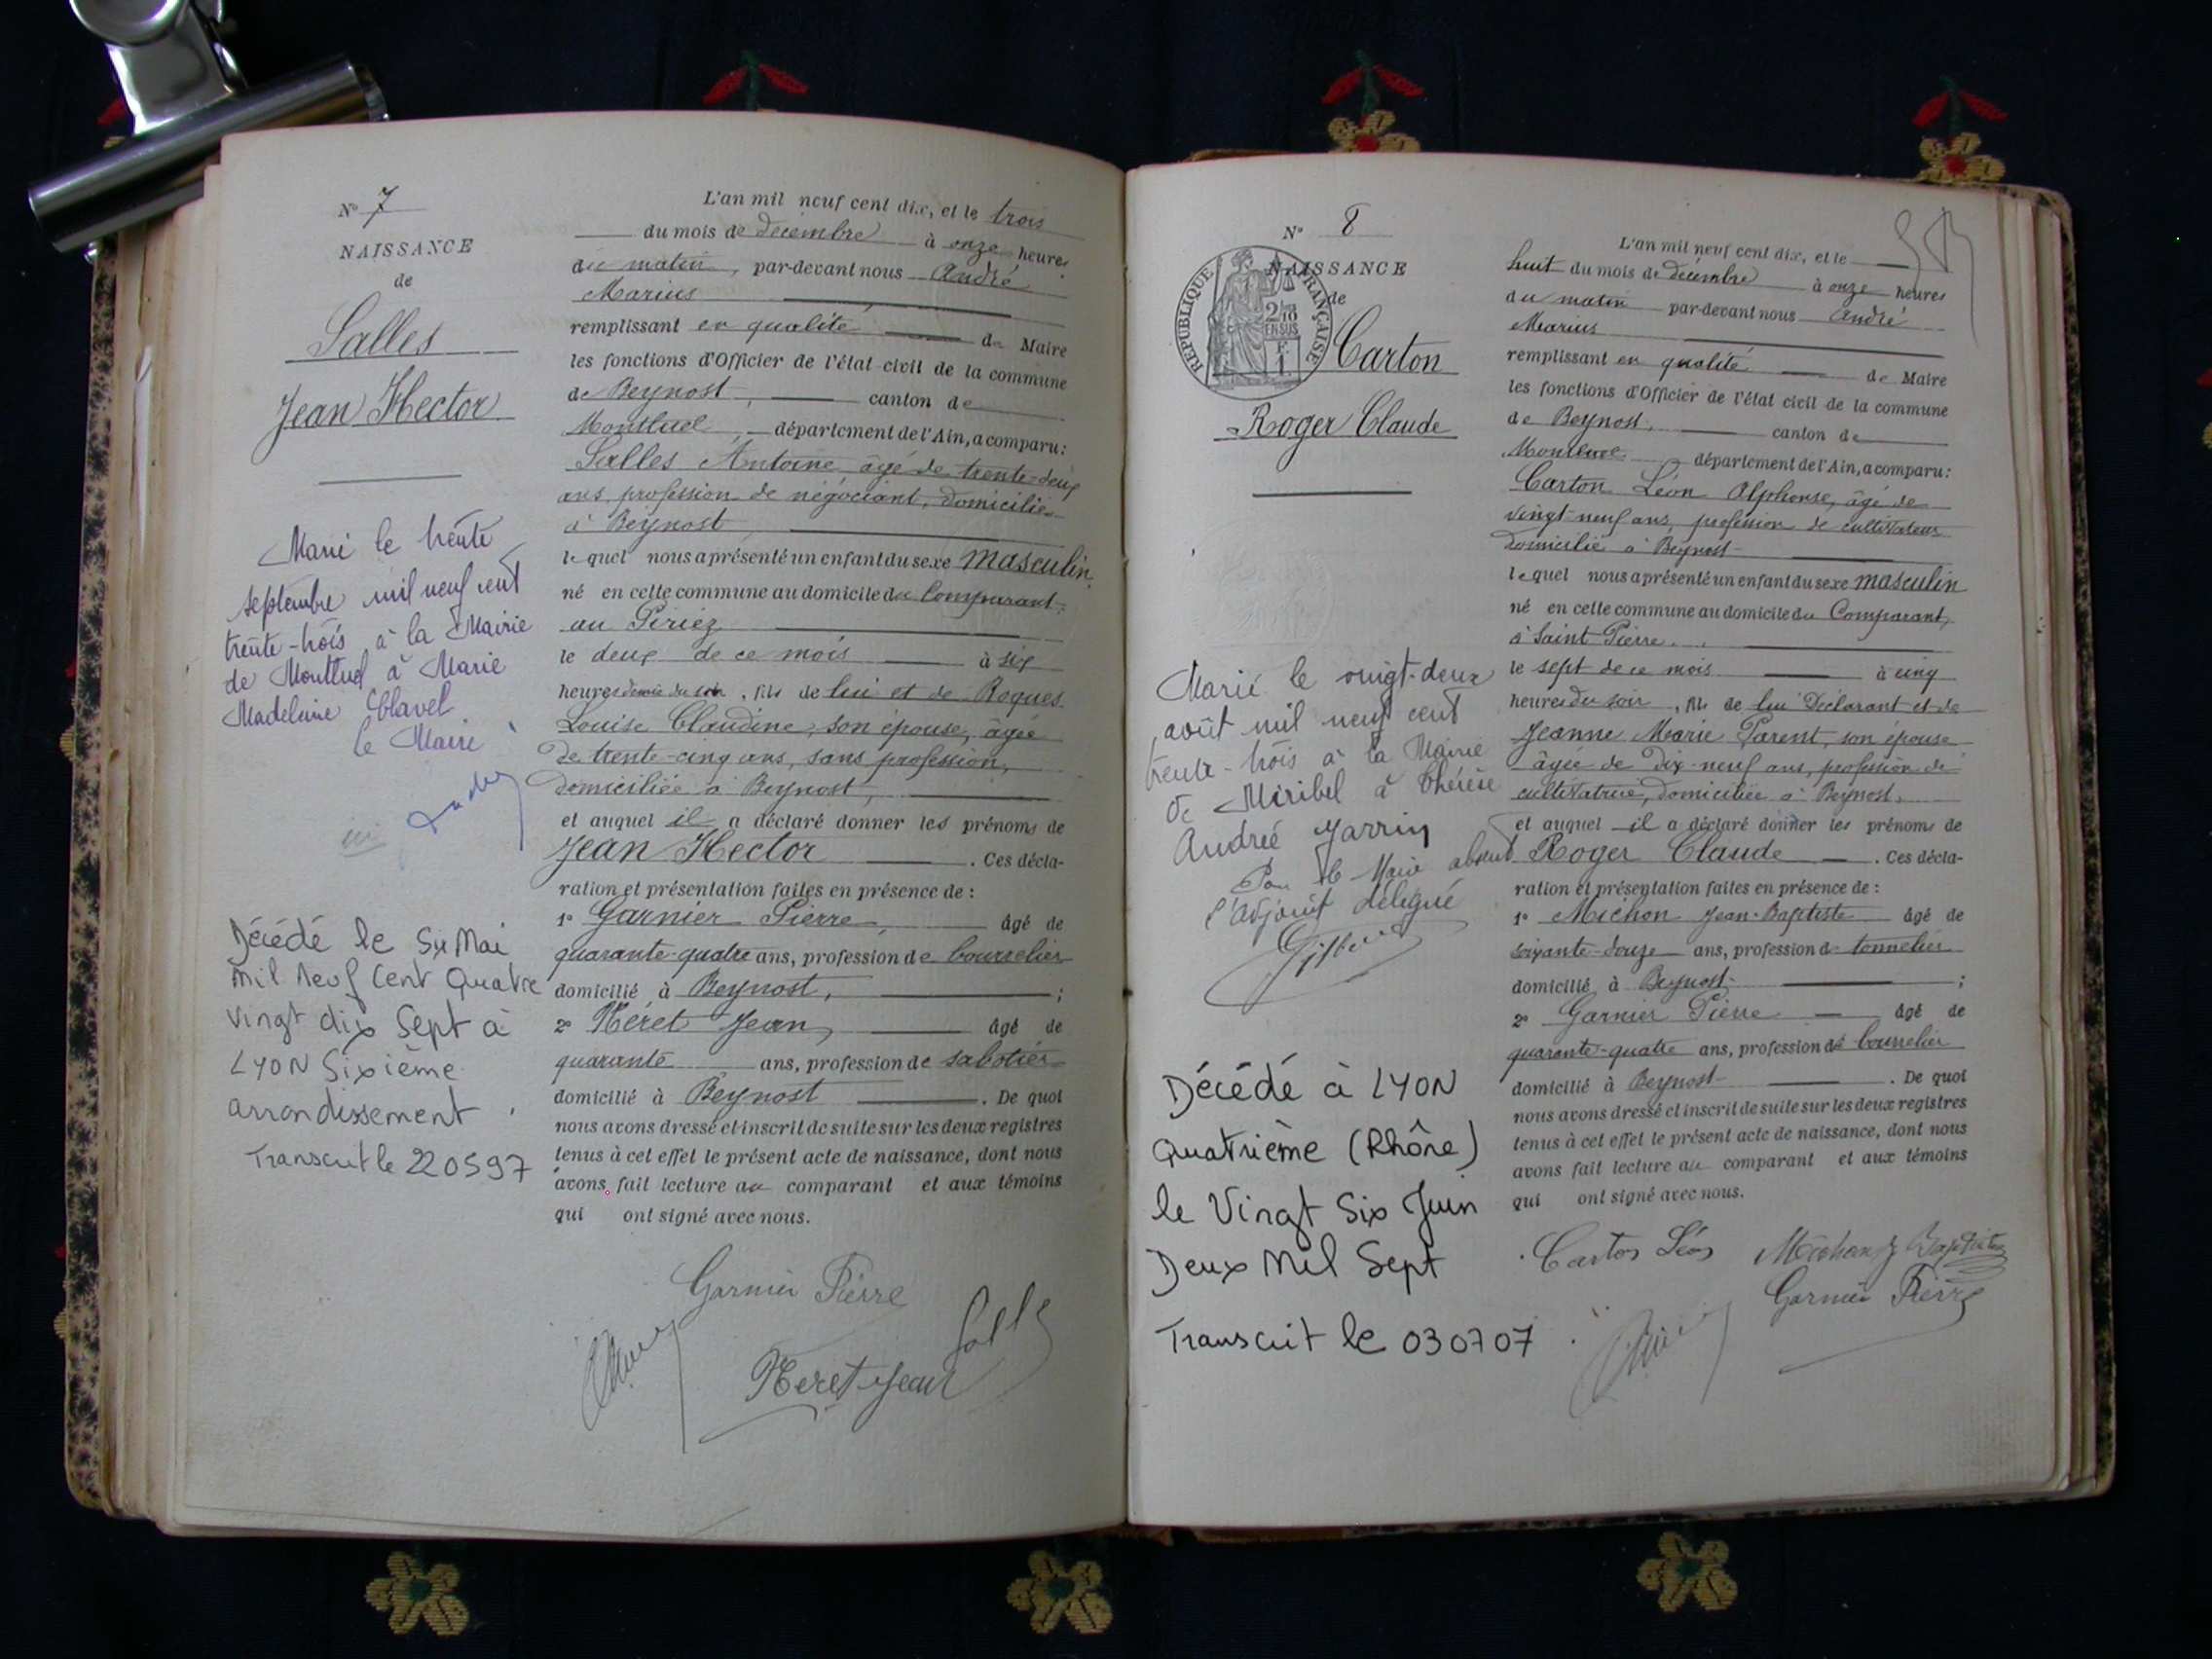 N° 7
NAISSANCE
de
Salles
Jean Hector
Marié le trente
septembre mil neuf cent
trente-trois à la Mairie
de Montluel à Marie
Madeleine Clavel
le Maire
Décédé le Six Mai
mil neuf Cent Quatre
vingt dix Sept à
LYON Sixième
arrondissement
Transcrit le 220597
L'an mil neuf cent dix, et le trois
du mois de décembre à onze heures
du matin, par-devant nous André
Marius
remplissant en qualité de Maire
les fonctions d'Officier de l'état civil de la commune
de Beynost, canton de
Montluel, département de l'Ain, a comparu:
Salles Antoine âgé de trente-deux
ans, profession de négociant, domicilié
à Beynost
lequel nous a présenté un enfant du sexe masculin
né en cette commune au domicile du Comparant,
au Périez
le deux de ce mois à six
heures demie du soir, fils de lui et de Roques
Louise Claudine, son épouse, âgée
de trente-cinq ans, sans profession,
domiciliée à Beynost,
et auquel il a déclaré donner les prénoms de
Jean Hector. Ces décla-
ration et présentation faites en présence de :
1° Garnier Pierre, âgé de
quarante-quatre ans, profession de bourrelier
domicilié à Beynost, ;
2° Néret Jean, âgé de
quarante ans, profession de sabotier
domicilié à Beynost. De quoi
nous avons dressé et inscrit de suite sur les deux registres
tenus à cet effet le présent acte de naissance, dont nous
avons fait lecture au comparant et aux témoins
qui ont signé avec nous.
Garnier Pierre
Salles
Neret Jean
N° 8
NAISSANCE
de
REPUBLIQUE FRANÇAISE
2/10
EN SUS
Carton
Roger Claude
Marié le vingt-deux
août mil neuf cent
trente-trois à la Mairie
de Miribel à Thérèse
Andrée Jarrin
Pour le Maire absent
l'adjoint délégué
Décédé à LYON
Quatrième (Rhône)
le Vingt Six Juin
Deux Mil Sept
Transcrit le 030707
L'an mil neuf cent dix, et le
huit du mois de décembre à onze heures
du matin par-devant nous André
Marius
remplissant en qualité de Maire
les fonctions d'Officier de l'état civil de la commune
de Beynost, canton de
Montluel département de l'Ain, a comparu:
Carton Léon Alphonse, âgé de
vingt-neuf ans, profession de cultivateur
domicilié à Beynost
lequel nous a présenté un enfant du sexe masculin
né en cette commune au domicile du Comparant,
à Saint Pierre.
le sept de ce mois à cinq
heures du soir, fils de lui Déclarant et de
Jeanne Marie Parent, son épouse
âgée de Dix-neuf ans, profession de
cultivatrice, domiciliée à Beynost,
et auquel il a déclaré donner les prénoms de
Roger Claude. Ces décla-
ration et présentation faites en présence de :
1° Michon Jean-Baptiste âgé de
soixante-douze ans, profession de tonnelier
domicilié à Beynost ;
2° Garnier Pierre âgé de
quarante-quatre ans, profession de bourrelier
domicilié à Beynost. De quoi
nous avons dressé et inscrit de suite sur les deux registres
tenus à cet effet le présent acte de naissance, dont nous
avons fait lecture au comparant et aux témoins
qui ont signé avec nous.
Carton Léon Michon J Baptiste
Garnier Pierre